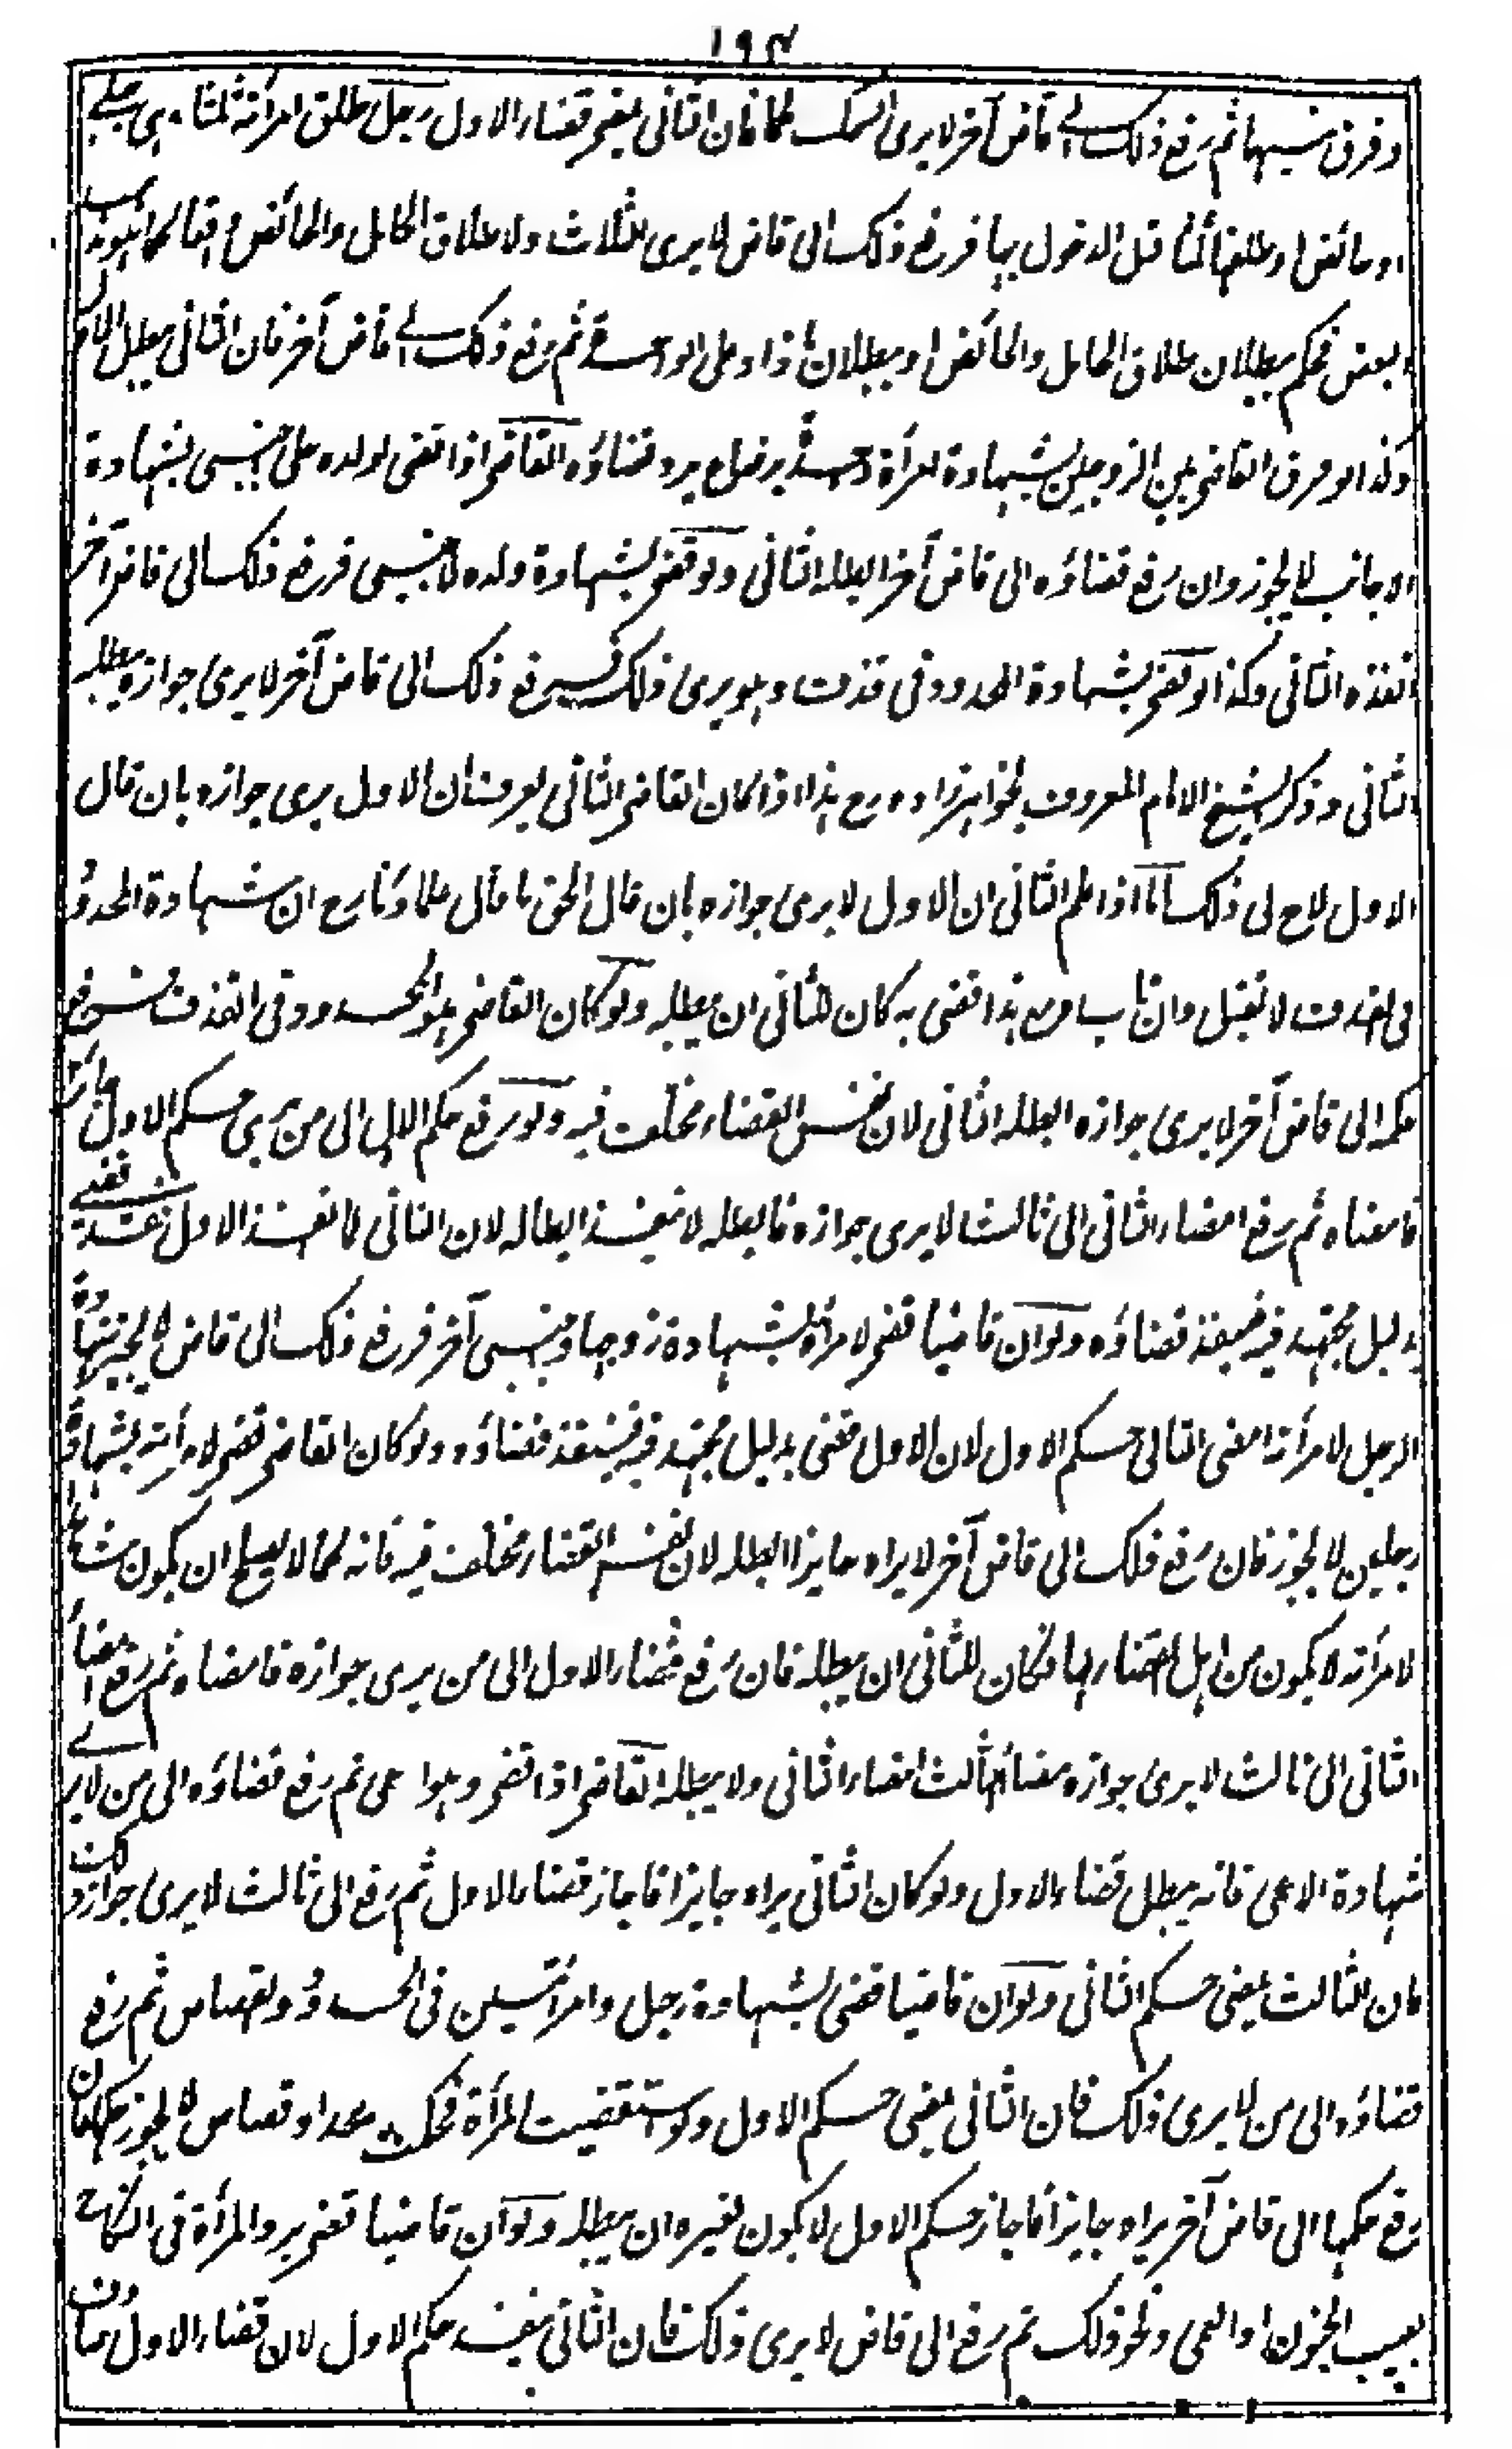 ١٩٤
وفرق بينهما ثم رفع ذلك الى قاض آخر لا يرى ذلك حكما فان الثانى يمضى قضاء الاول رجل طلق امرأته ثلثا وهى حبلى
او حائض او طلقها ثلثا قبل الدخول بها فرفع ذلك الى قاض لا يرى الثلاث ولا طلاق الحامل والحائض واقعا كما هو مذهب
البعض فحكم ببطلان طلاق الحامل والحائض او ببطلان ما زاد على الواحدة ثم رفع ذلك الى قاض آخر فان الثانى يبطل الاول
وكذا لو فرق القاضى بين الزوجين بشهادة امرأة واحدة برضاع يرد قضاؤه القاضى اذا قضى لولده على اجنبى بشهادة
الاجانب لا يجوز وان رفع قضاؤه الى قاض آخر ابطله الثانى ولو قضى بشهادة ولده لاجنبى فرفع ذلك الى قاض آخر
انفذه الثانى وكذا لو قضى بشهادة المحدود فى قذف وهو يرى ذلك فرفع ذلك الى قاض آخر لا يرى جوازه يبطله
الثانى وذكر الشيخ الامام المعروف بخواهرزاده رح هذا اذا كان القاضى الثانى يعرف ان الاول يرى جوازه بان قال
الاول لاح لى ذلك اما اذا علم الثانى ان الاول لا يرى جوازه بان قال الحق ما قال علماؤنا رح ان شهادة المحدود
فى القذف لا تقبل وان تاب ومع هذا قضى به كان للثانى ان يبطله ولو كان القاضى هو المحدود فى القذف فرفع
حكمه الى قاض آخر لا يرى جوازه ابطله الثانى لان نفس القضاء مختلف فيه ولو رفع حكم الاول الى من يرى حكم الاول جائزا
فامضاه ثم رفع امضاء الثانى الى ثالث لا يرى جوازه فابطله لا ينفذ ابطاله لان الثانى لما نفذ الاول فقد قضى
بدليل مجتهد فيه فينفذ قضاؤه ولو ان قاضيا قضى لامرأة بشهادة زوجها واجنبى آخر فرفع ذلك الى قاض لا يجيز شهادة
الرجل لامرأته امضى الثانى حكم الاول لان الاول قضى بدليل مجتهد فيه فينفذ قضاؤه ولو كان القاضى قضى لامرأته بشهادة
رجلين لا يجوز فان رفع ذلك الى قاض آخر لا يراه جايزا ابطله لان نفس القضاء مختلف فيه فانه كما لا يصلح ان يكون شاهدا
لامرأته لا يكون من اهل القضاء لها فكان للثانى ان يبطله فان رفع قضاء الاول الى من يرى جوازه فامضاه ثم رفع امضاء
الثانى الى ثالث لا يرى جوازه امضى الثالث امضاء الثانى ولا يبطله القاضى اذا قضى وهو اعمى ثم رفع قضاؤه الى من لا يرى
شهادة الاعمى فانه يبطل قضاء الاول ولو كان الثانى يراه جايزا فاجاز قضاء الاول ثم رفع الى ثالث لا يرى جواز ذلك
فان الثالث يمضى حكم الثانى ولو ان قاضيا قضى بشهادة رجل وامرأتين فى الحدود والقصاص ثم رفع
قضاؤه الى من لا يرى ذلك فان الثانى يمضى حكم الاول ولو استقضيت امرأة فحكمت بحد او قصاص لا يجوز حكمها فان
رفع حكمها الى قاض آخر يراه جايزا فاجاز حكم الاول لا يكون لغيره ان يبطله ولو ان قاضيا قضى برد المرأة فى النكاح
بعيب الجنون او العمى ونحو ذلك ثم رفع الى قاض لا يرى ذلك فان الثانى ينفذ حكم الاول لان قضاء الاول صادف